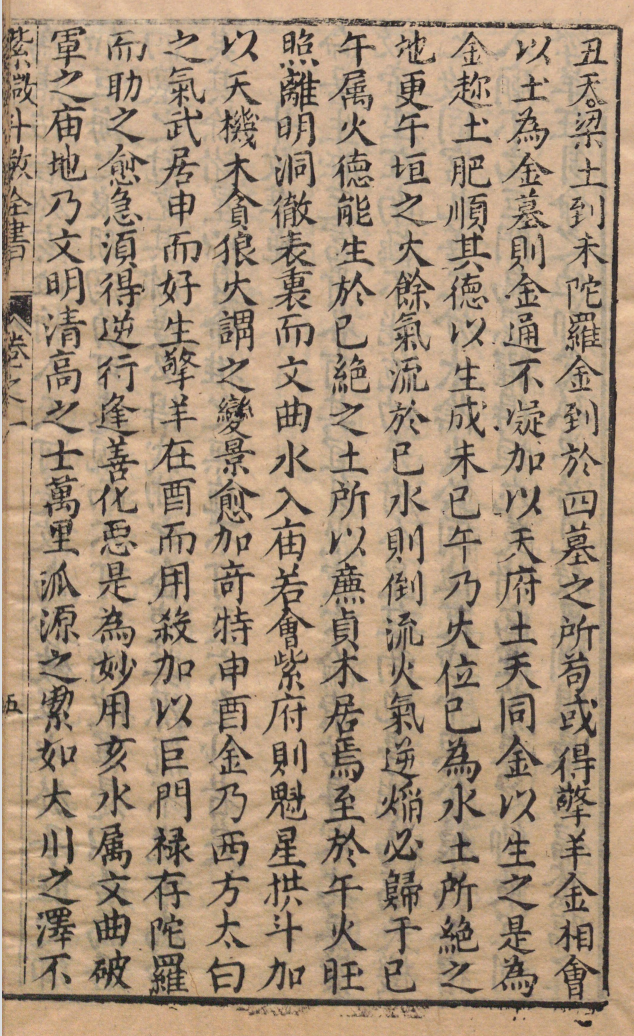 丑天梁土到未陀羅金到於四墓之所苟或得擎羊金相會
以土為金墓則金通不凝加以天府土天同金以生之是為
金趂土肥順其德以生成未巳午乃火位巳為水土所絶之
地更午垣之火餘氣流於巳水則倒流火氣逆焰必歸于巳
午属火德能生於巳絶之土所以廉貞木居焉至於午火旺
照離明洞徹表裏而文曲水入庙若會紫府則魁星拱斗加
以天機木貪狼火謂之變景愈加奇特申酉金乃西方太白
之氣武居申而好生擎羊在酉而用殺加以巨門禄存陀羅
而助之愈急湏得逆行逢善化惡是為妙用亥水属文曲破
軍之庙地乃文明清高之士萬里派源之潔如大川之澤不
紫微斗数全書
卷之一
五